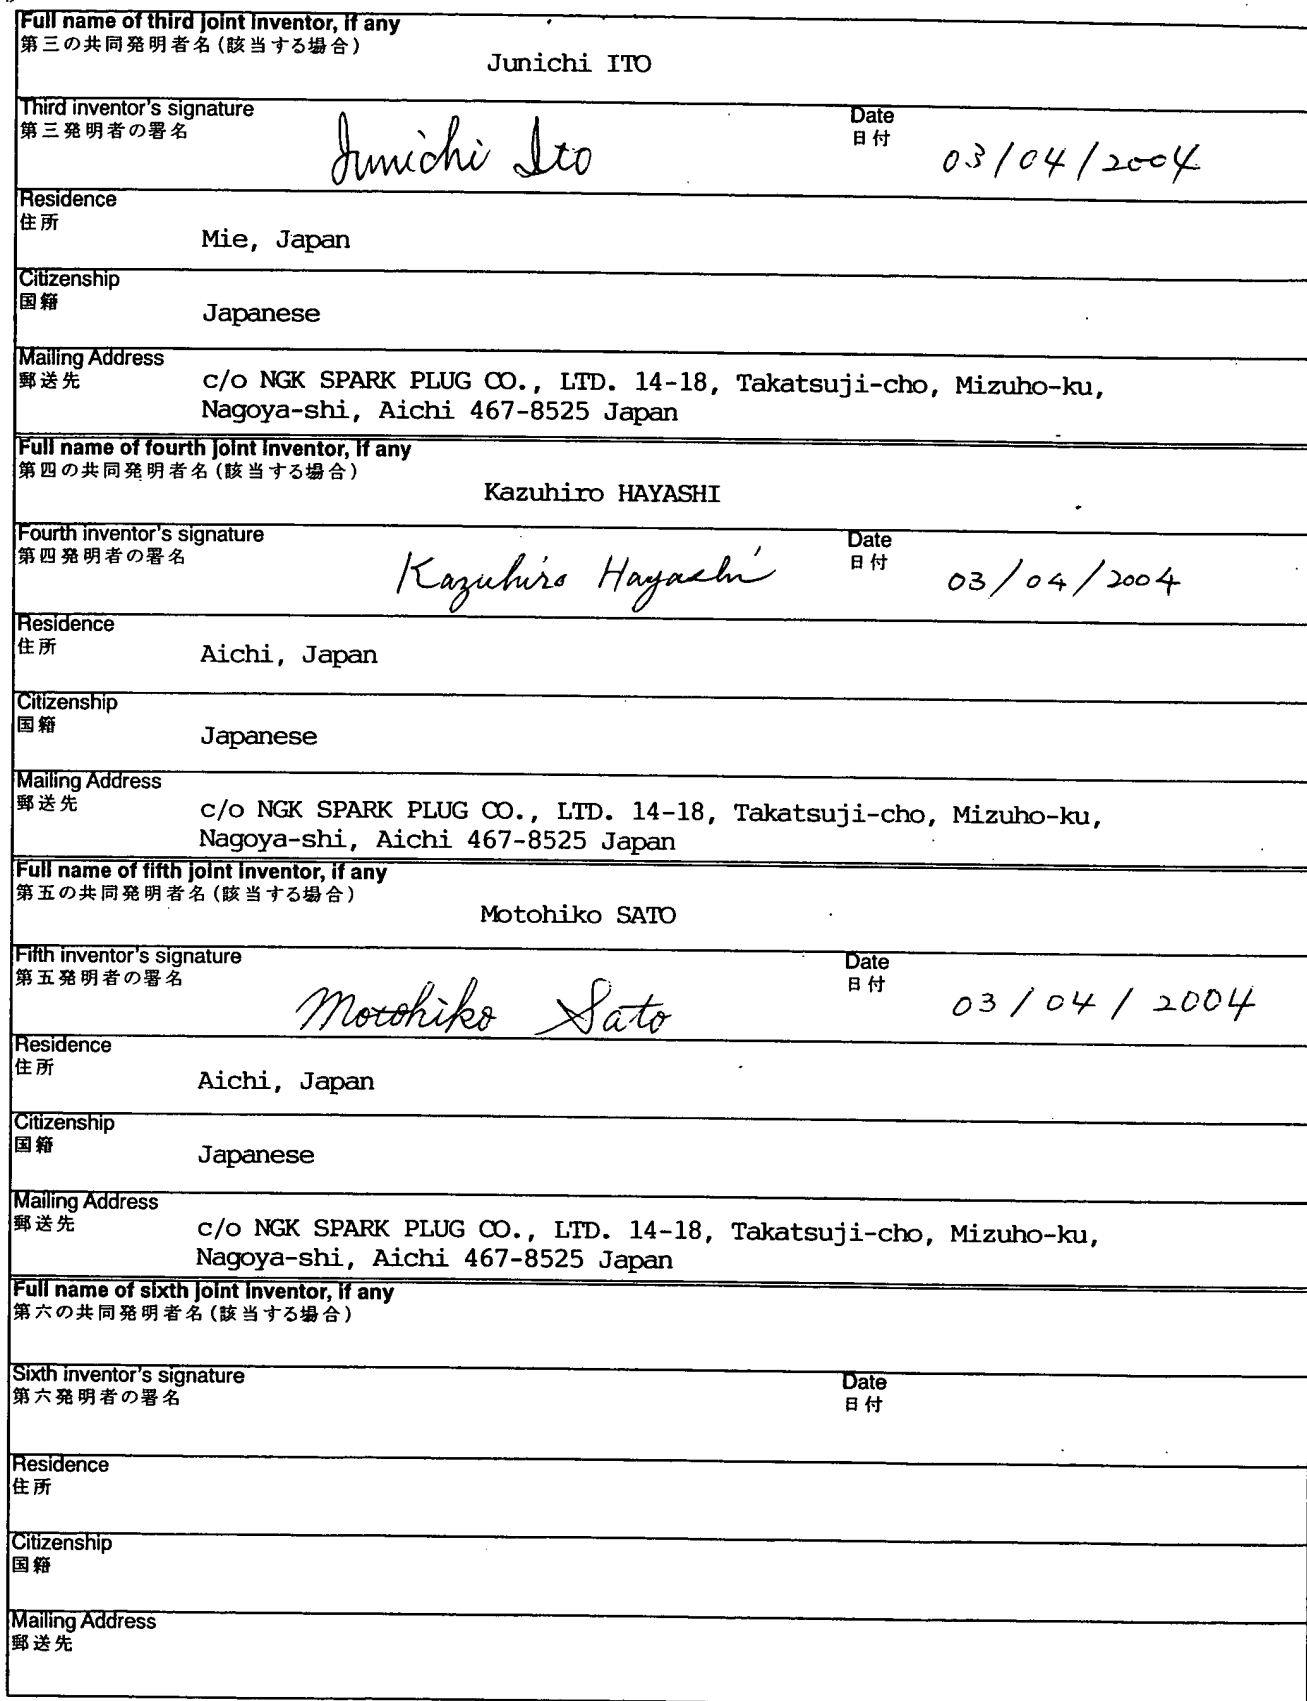 Full name of third joint inventor, if any
第三の共同発明者名(該当する場合)
Junichi ITO
Third inventor's signature
第三発明者の署名
Junichi Ito
Date
日付
03/04/2004
Residence
住所
Mie, Japan
Citizenship
国籍
Japanese
Mailing Address
郵送先
c/o NGK SPARK PLUG CO., LTD. 14-18, Takatsuji-cho, Mizuho-ku,
Nagoya-shi, Aichi 467-8525 Japan
Full name of fourth joint inventor, if any
第四の共同発明者名(該当する場合)
Kazuhiro HAYASHI
Fourth inventor's signature
第四発明者の署名
Kazuhiro Hayashi
Date
日付
03/04/2004
Residence
住所
Aichi, Japan
Citizenship
国籍
Japanese
Mailing Address
郵送先
c/o NGK SPARK PLUG CO., LTD. 14-18, Takatsuji-cho, Mizuho-ku,
Nagoya-shi, Aichi 467-8525 Japan
Full name of fifth joint inventor, if any
第五の共同発明者名(該当する場合)
Motohiko SATO
Fifth inventor's signature
第五発明者の署名
Motohiko Sato
Date
日付
03/04/2004
Residence
住所
Aichi, Japan
Citizenship
国籍
Japanese
Mailing Address
郵送先
c/o NGK SPARK PLUG CO., LTD. 14-18, Takatsuji-cho, Mizuho-ku,
Nagoya-shi, Aichi 467-8525 Japan
Full name of sixth joint inventor, if any
第六の共同発明者名(該当する場合)
Sixth inventor's signature
第六発明者の署名
Date
日付
Residence
住所
Citizenship
国籍
Mailing Address
郵送先